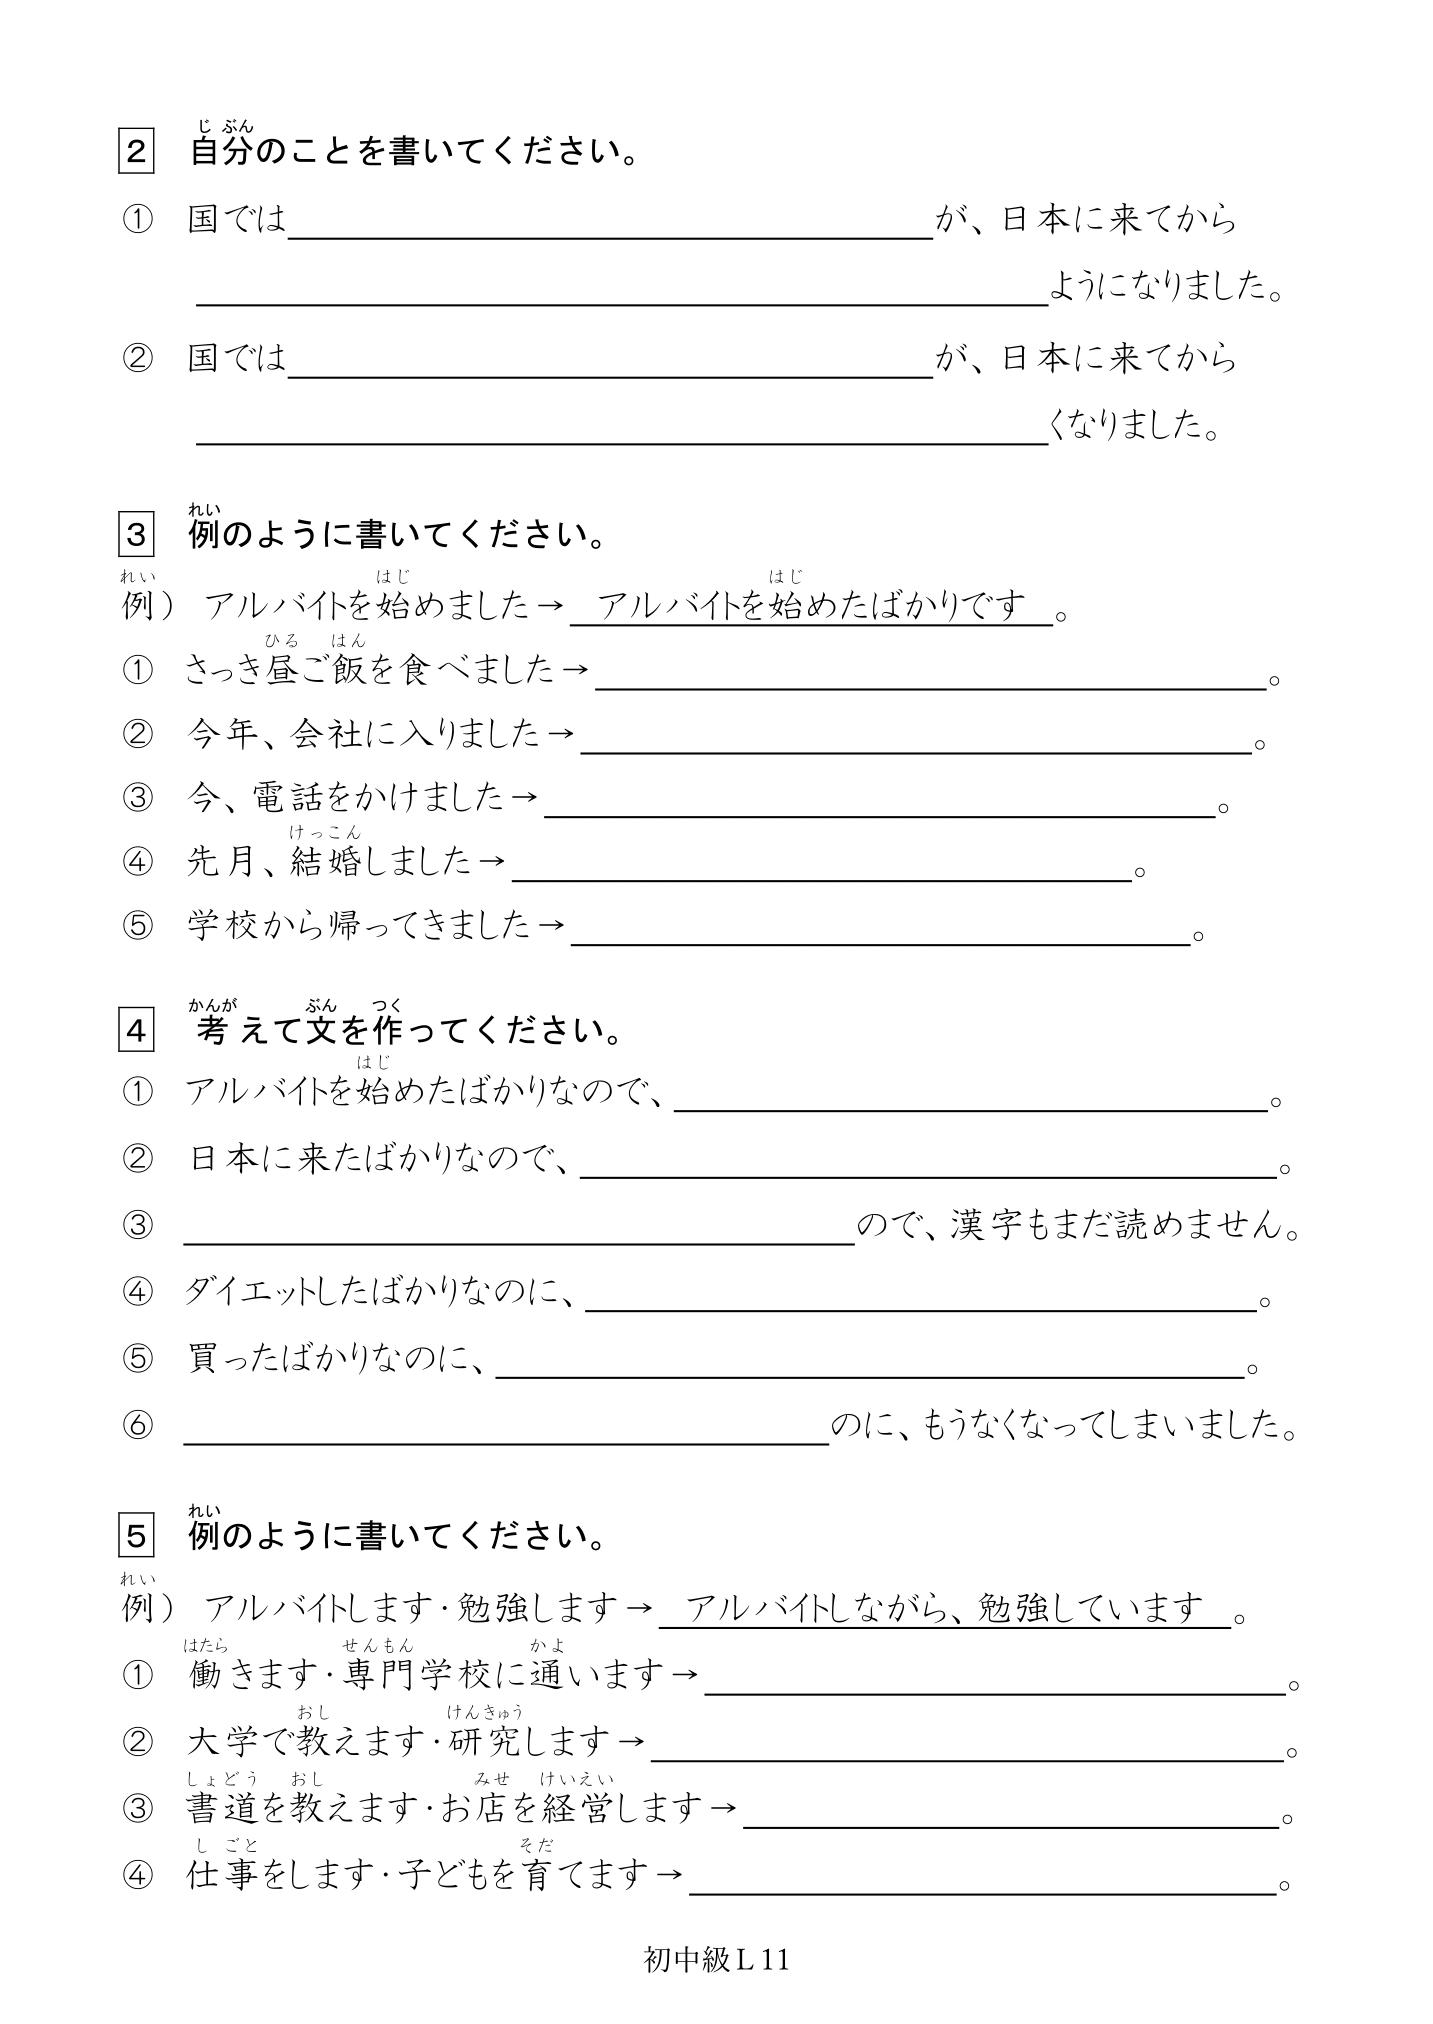 2 自分のことを書いてください。
① 国では＿＿＿＿＿＿＿＿＿＿が、日本に来てから
＿＿＿＿＿＿＿＿＿＿ようになりました。
② 国では＿＿＿＿＿＿＿＿＿＿が、日本に来てから
＿＿＿＿＿＿＿＿＿＿くなりました。
3 例のように書いてください。
例） アルバイトを始めました→ アルバイトを始めたばかりです 。
① さっき昼ご飯を食べました→＿＿＿＿＿＿＿＿＿＿。
② 今年、会社に入りました→＿＿＿＿＿＿＿＿＿＿。
③ 今、電話をかけました→＿＿＿＿＿＿＿＿＿＿。
④ 先月、結婚しました→＿＿＿＿＿＿＿＿＿＿。
⑤ 学校から帰ってきました→＿＿＿＿＿＿＿＿＿＿。
4 考えて文を作ってください。
① アルバイトを始めたばかりなので、＿＿＿＿＿＿＿＿＿＿。
② 日本に来たばかりなので、＿＿＿＿＿＿＿＿＿＿。
③ ＿＿＿＿＿＿＿＿＿＿ので、漢字もまだ読めません。
④ ダイエットしたばかりなのに、＿＿＿＿＿＿＿＿＿＿。
⑤ 買ったばかりなのに、＿＿＿＿＿＿＿＿＿＿。
⑥ ＿＿＿＿＿＿＿＿＿＿のに、もうなくなってしまいました。
5 例のように書いてください。
例） アルバイトします・勉強します→ アルバイトしながら、勉強しています 。
① 働きます・専門学校に通います→＿＿＿＿＿＿＿＿＿＿。
② 大学で教えます・研究します→＿＿＿＿＿＿＿＿＿＿。
③ 書道を教えます・お店を経営します→＿＿＿＿＿＿＿＿＿＿。
④ 仕事をします・子どもを育てます→＿＿＿＿＿＿＿＿＿＿。
初中級L11